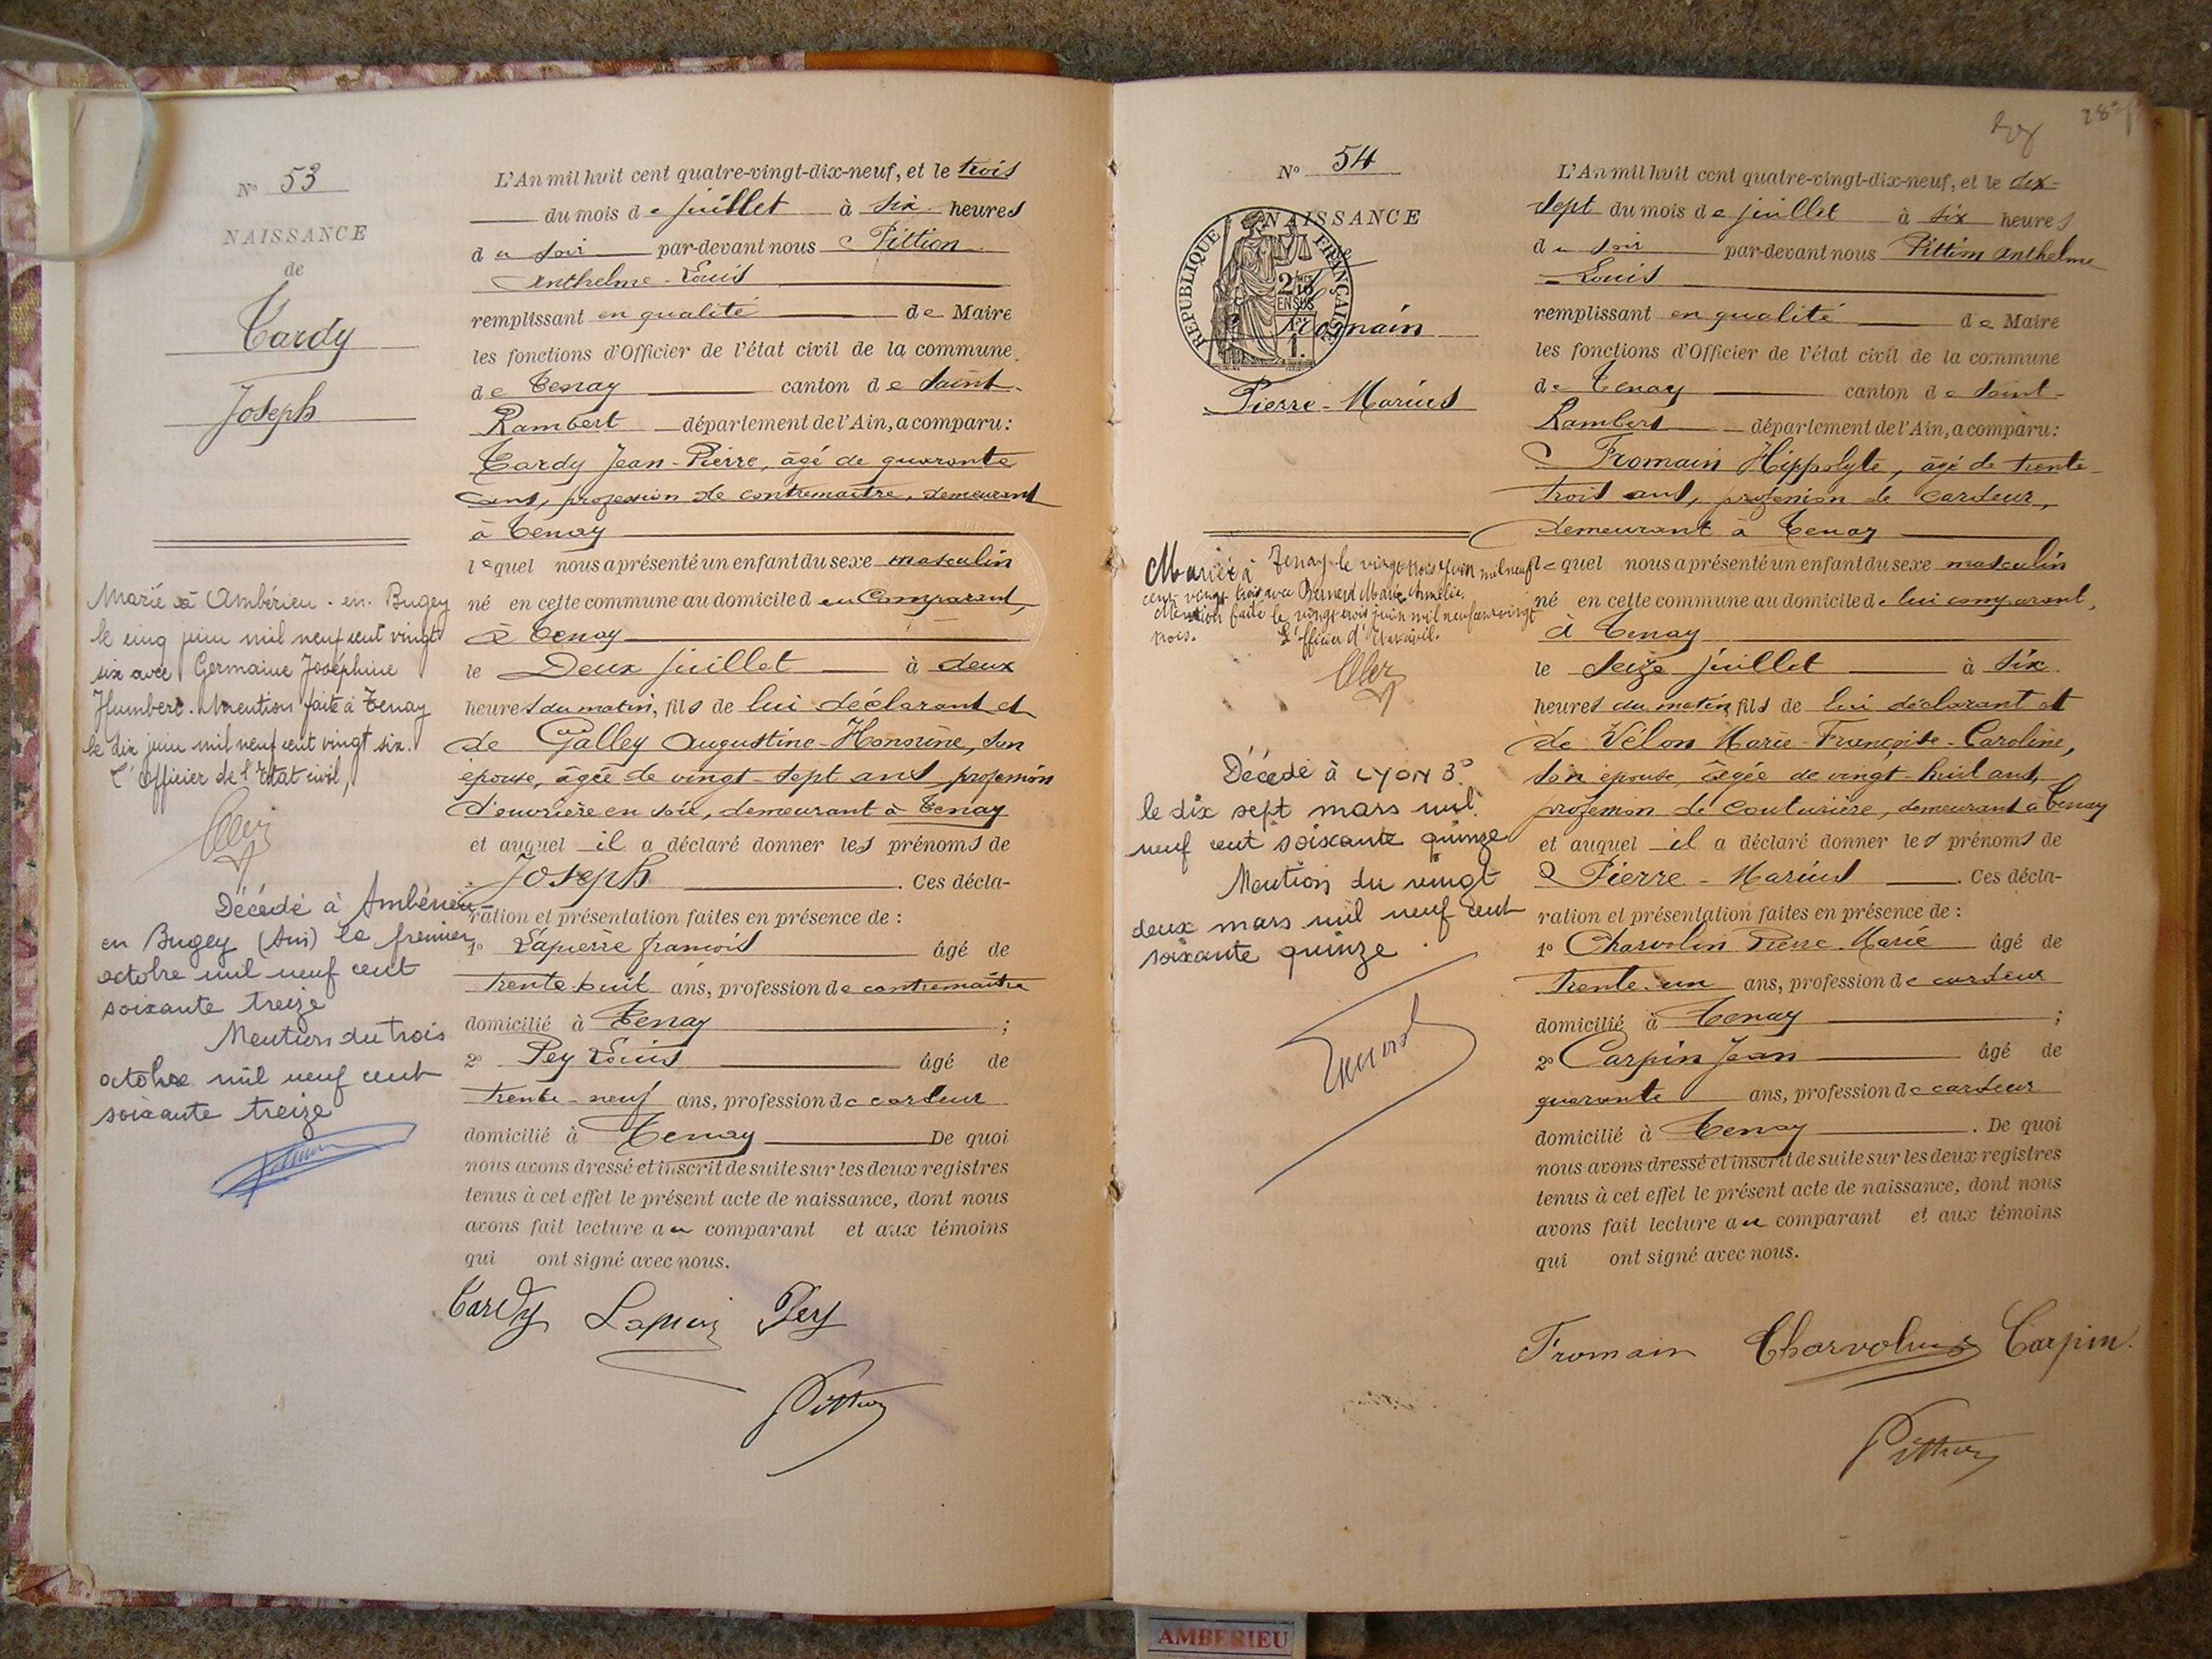 N° 53
NAISSANCE
de
Tardy
Joseph
Marié à Ambérieu-en-Bugey
le cinq juin mil neuf cent vingt
six avec Germaine Joséphine
Humbert. Mention faite à Tenay
le dix juin mil neuf cent vingt six.
L'Officier de l'Etat civil,
Décédé à Ambérieu
en Bugey (Ain) le premier
octobre mil neuf cent
soixante treize
Mention du trois
octobre mil neuf cent
soixante treize
L'An mil huit cent quatre-vingt-dix-neuf, et le trois
du mois de juillet à six heures
du soir par-devant nous Pittion
Anthelme-Louis
remplissant en qualité de Maire
les fonctions d'Officier de l'état civil de la commune
de Tenay canton de Saint-
Rambert département de l'Ain, a comparu:
Tardy Jean-Pierre, âgé de quarante
ans, profession de contremaître, demeurant
à Tenay
lequel nous a présenté un enfant du sexe masculin
né en cette commune au domicile du Comparant,
à Tenay
le Deux juillet à deux
heures du matin, fils de lui déclarant et
de Galley Augustine-Honorine, son
épouse, âgée de vingt-sept ans, profession
d'ouvrière en soie, demeurant à Tenay
et auquel il a déclaré donner les prénoms de
Joseph. Ces décla-
ration et présentation faites en présence de :
1° Lapierre françois âgé de
trente huit ans, profession de contremaître
domicilié à Tenay ;
2° Pey Louis âgé de
trente-neuf ans, profession de cardeur
domicilié à Tenay De quoi
nous avons dressé et inscrit de suite sur les deux registres
tenus à cet effet le présent acte de naissance, dont nous
avons fait lecture au comparant et aux témoins
qui ont signé avec nous.
Tardy Lapierre Pey
Pittion
28
N° 54
NAISSANCE
de
RÉPUBLIQUE FRANÇAISE
2/10 EN SUS
1.
Fromain
Pierre-Marius
Marié à Tenay le vingt-trois Juin mil neuf
cent vingt trois avec Bernard Marie Amélie.
Mention faite le vingt-trois juin mil neuf cent vingt
trois. L'Officier d'Etat civil.
Décédé à LYON 3°
le dix sept mars mil
neuf cent soixante quinze
Mention du vingt
deux mars mil neuf cent
soixante quinze
L'An mil huit cent quatre-vingt-dix-neuf, et le dix-
sept du mois de juillet à six heures
du soir par-devant nous Pittion Anthelme
-Louis
remplissant en qualité de Maire
les fonctions d'Officier de l'état civil de la commune
de Tenay canton de Saint-
Rambert département de l'Ain, a comparu:
Fromain Hippolyte, âgé de trente-
trois ans, profession de cardeur,
demeurant à Tenay
lequel nous a présenté un enfant du sexe masculin
né en cette commune au domicile de lui comparant,
à Tenay
le Seize juillet à six
heures du matin, fils de lui déclarant et
de Vélon Marie-Françoise-Caroline,
son épouse, âgée de vingt-huit ans,
profession de couturière, demeurant à Tenay
et auquel il a déclaré donner les prénoms de
Pierre-Marius. Ces décla-
ration et présentation faites en présence de :
1° Charvolin Pierre-Marie âgé de
trente-un ans, profession de cardeur
domicilié à Tenay ;
2° Carpin Jean âgé de
quarante ans, profession de cardeur
domicilié à Tenay. De quoi
nous avons dressé et inscrit de suite sur les deux registres
tenus à cet effet le présent acte de naissance, dont nous
avons fait lecture au comparant et aux témoins
qui ont signé avec nous.
Fromain Charvolin Carpin
Pittion
AMBERIEU